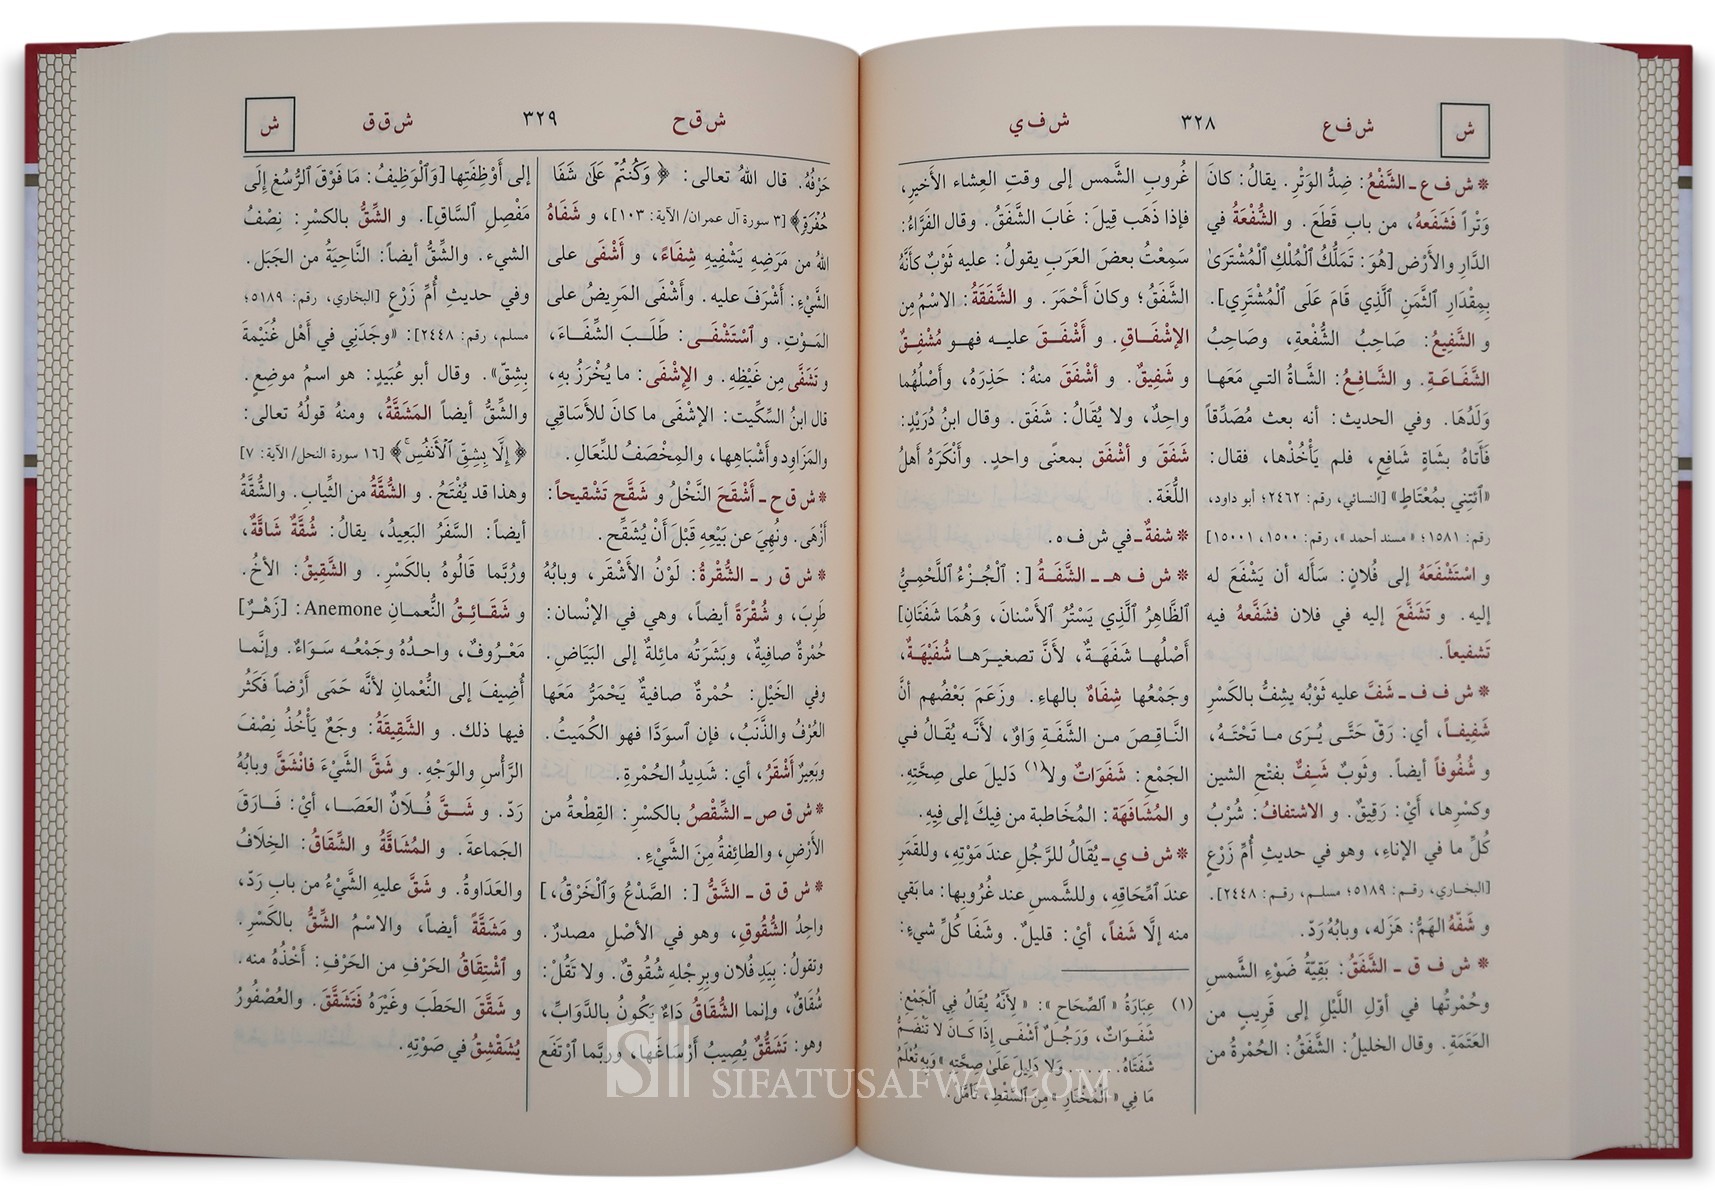 ش
ش ف ع
٣٢٨
ش ف ي
* ش ف ع ـ الشَّفْعُ: ضِدُّ الوَتْرِ. يقالُ: كانَ
وَتْراً فَشَفَعهُ، من باب قَطَعَ. و الشُّفْعَةُ في
الدَّارِ والأَرْضِ [هُوَ: تَمَلُّكُ ٱلْمُلْكِ ٱلْمُشْتَرَىٰ
بِمِقْدَارِ الثَّمَنِ الَّذِي قَامَ عَلَى الْمُشْتَرِي].
و الشَّفِيعُ: صَاحِبُ الشُّفْعةِ، وصَاحِبُ
الشَّفَاعَةِ. و الشَّافِعُ: الشَّاةُ التي مَعَها
وَلَدُهَا. وفي الحديث: أنه بعث مُصَدِّقاً
فَأَتاهُ بشاةٍ شَافِعٍ، فلم يَأْخُذْها، فقال:
«ائتِني بمُعْتَاطٍ» [النسائي، رقم: ٢٤٦٢؛ أبو داود،
رقم: ١٥٨١؛ «مسند أحمد»، رقم: ١٥٠٠، ١٥٠٠١]
و اسْتَشْفَعَهُ إلى فُلانٍ: سَأَله أن يَشْفَعَ له
إليه. و تَشَفَّعَ إليه في فلان فشَفَّعهُ فيه
تَشفيعاً.
* ش ف ف ـ شَفَّ عليه ثَوْبُه يشِفُّ بالكَسْرِ
شَفِيفاً، أي: رَقَّ حَتَّى يُرَى ما تَحْتَهُ،
و شُفُوفاً أيضاً. وثَوبٌ شَفٌّ بفتْحِ الشين
وكسْرِها، أَيْ: رَقِيقٌ. و الاشتفافُ: شُرْبُ
كُلِّ ما في الإناءِ، وهو في حديثِ أُمِّ زَرْعٍ
[البخاري، رقم: ٥١٨٩؛ مسلم، رقم: ٢٤٤٨].
و شَفَّهُ الهَمُّ: هَزَله، وبابُهُ رَدّ.
* ش ف ق ـ الشَّفَقُ: بَقِيَّةُ ضَوْءِ الشَّمْسِ
وحُمْرتُها في أوّلِ اللَّيْلِ إلى قَرِيبٍ من
العَتَمَةِ. وقال الخليلُ: الشَّفَقُ: الحُمْرةُ من
غُروبِ الشَّمس إلى وقتِ العِشاء الأَخيرِ،
فإذا ذَهَب قِيلَ: غَابَ الشَّفَقُ. وقال الفَرَّاءُ:
سَمِعْتُ بعضَ العَرَبِ يقولُ: عليه ثَوْبٌ كأنَّهُ
الشَّفَقُ؛ وكانَ أحْمَرَ. و الشَّفَقَةُ: الاسْمُ مِن
الإشْفَاقِ. و أَشْفَقَ عليه فهو مُشْفِقٌ
و شَفِيقٌ. و أشْفَقَ منهُ: حَذِرَهُ، وأَصْلُهُما
واحِدٌ، ولا يُقَالُ: شَفَق. وقال ابنُ دُرَيْدٍ:
شَفَقَ و أشْفَق بمعنًى واحدٍ. وأَنْكَرَهُ أهلُ
اللُّغَة.
* شفةٌ ـ في ش ف ه.
* ش ف هـ ـ الشَّفَةُ [: ٱلْجُزْءُ اللَّحْمِيُّ
ٱلظَّاهِرُ الَّذِي يَسْتُرُ الأَسْنانَ، وَهُمَا شَفَتَانِ]
أَصْلُها شَفَهَةٌ، لأَنَّ تصغيرَها شُفَيْهَةٌ،
وجَمْعُها شِفَاهٌ بالهاءِ. وزَعَمَ بَعْضُهم أنَّ
النَّاقِصَ من الشَّفَةِ وَاوٌ، لأَنَّه يُقَالُ في
الجَمْعِ: شَفَوَاتٌ ولا(١) دَليلَ على صِحَّتِهِ.
و المُشَافَهَة: المُخَاطبة من فِيكَ إلى فِيهِ.
* ش ف ي ـ يُقَالُ للرَّجُلِ عندَ مَوْتِهِ، وللقمَرِ
عندَ ٱمِّحَاقِهِ، وللشَّمْسِ عند غُرُوبها: ما بَقي
منه إلَّا شَفاً، أيْ: قليلٌ. وشَفَا كُلِّ شيءٍ:
(١) عِبَارَةُ «ٱلصِّحَاحِ»: «لِأَنَّهُ يُقَالُ فِي ٱلْجَمْعِ:
شَفَوَاتٌ، وَرَجُلٌ أَشْفَى إِذَا كَانَ لَا تَنْضَمُّ
شَفَتَاهُ. . . . . وَلَا دَلِيلَ عَلَىٰ صِحَّتِهِ» وَبِهِ تُعْلَمُ
مَا فِي «ٱلْمُخْتَارِ» مِنَ ٱلسَّقْطِ، تَأَمَّلْ.
ش ق ح
٣٢٩
ش ق ق
ش
حَرْفُهُ. قال اللهُ تعالى: ﴿وَكُنتُمْ عَلَىٰ شَفَا
حُفْرَةٍ﴾ [٣ سورة آل عمران/ الآية: ١٠٣]، و شَفَاهُ
اللهُ من مَرَضِهِ يَشْفِيهِ شِفَاءً، و أَشْفَى على
الشَّيْءِ: أشْرَفَ عليه. وأَشْفَى المَرِيضُ على
المَوْتِ. و ٱسْتَشْفَى: طَلَبَ الشِّفَاءَ،
و تَشَفَّى مِن غَيْظِه. و الإشْفَى: ما يُخْرَزُ بِهِ،
قال ابنُ السِّكِّيت: الإشْفَى ما كانَ للأَسَاقِي
والمَزَاوِد وأَشْبَاهِها، والمِخْصَفُ للنِّعَالِ.
* ش ق ح ـ أَشْقَحَ النَّخْلُ و شَقَّح تَشْقيحاً:
أَزْهَى. ونُهِيَ عن بَيْعِهِ قَبْلَ أَنْ يُشَقِّحَ.
* ش ق ر ـ الشُّقْرةُ: لَوْنُ الأَشْقَرِ، وبابُهُ
طَرِبَ، و شُقْرَةً أيضاً، وهي في الإنْسان:
حُمْرةٌ صافيةٌ، وبَشَرَتُه مائِلةٌ إلى البَيَاضِ.
وفي الخَيْلِ: حُمْرةٌ صافيةٌ يَحْمَرُّ مَعَها
العُرْفُ والذَّنَبُ، فإن ٱسوَدَّا فهو الكُمَيتُ.
وبَعِيرٌ أَشْقَرُ، أي: شَدِيدُ الحُمْرةِ.
* ش ق ص ـ الشِّقْصُ بالكسْرِ: القِطْعةُ من
الأَرْضِ، والطائِفةُ مِنَ الشَّيْءِ.
* ش ق ق ـ الشَّقُّ [: الصَّدْعُ وَٱلْخَرْقُ،]
واحِدُ الشُّقُوقِ، وهو في الأصْلِ مصدرٌ.
وتقولُ: بِيَدِ فُلان وبِرِجْلِه شُقُوقٌ. ولا تَقُلْ:
شُقَاقٌ، وإنما الشُّقَاقُ دَاءٌ يكُونُ بالدَّوَابِّ،
وهو: تَشَقُّقٌ يُصِيبُ أَرْسَاغَها، وربَّما ٱرْتَفَع
إلى أَوْظِفَتِها [وَٱلْوَظِيفُ: مَا فَوْقَ ٱلرُّسْغِ إِلَى
مَفْصِلِ ٱلسَّاقِ]. و الشِّقُّ بالكسْرِ: نِصْفُ
الشيء. والشِّقُّ أيضاً: النَّاحِيَةُ من الجَبَل.
وفي حديثِ أُمِّ زَرْعٍ [البخاري، رقم: ٥١٨٩؛
مسلم، رقم: ٢٤٤٨]: «وجَدَنِي في أهْل غُنَيْمة
بِشِقّ». وقال أبو عُبَيدٍ: هو اسمُ موضِعٍ.
والشِّقُّ أيضاً المَشَقَّةُ، ومنهُ قولُهُ تعالى:
﴿إِلَّا بِشِقِّ ٱلْأَنفُسِ ۚ﴾ [١٦ سورة النحل/ الآية: ٧]
وهذا قد يُفْتَحُ. و الشُّقَّةُ من الثِّيابِ. والشُّقَّةُ
أيضاً: السَّفَرُ البَعِيدُ، يقالُ: شُقَّةٌ شَاقَّةٌ،
ورُبَّما قالُوهُ بالكَسْرِ. و الشَّقِيقُ: الأخُ.
و شَقَائِقُ النُّعمانِ Anemone: [زَهْرٌ]
مَعْرُوفٌ، واحدُهُ وجَمْعُه سَوَاءٌ. وإنَّما
أُضِيفَ إلى النُّعْمانِ لأنَّه حَمَى أَرْضاً فكَثُر
فيها ذلك. و الشَّقِيقَةُ: وجَعٌ يَأْخُذُ نِصْفَ
الرَّأْسِ والوَجْهِ. و شَقَّ الشَّيْءَ فانْشَقَّ وبابُهُ
رَدّ. و شَقَّ فُلَانٌ العَصَا، أيْ: فَارَقَ
الجَماعةَ. و المُشَاقَّةُ و الشِّقَاقُ: الخِلَافُ
والعَدَاوةُ. و شَقَّ عليهِ الشَّيْءُ من بابِ رَدّ،
و مَشَقَّةً أيضاً، والاسْمُ الشِّقُّ بالكَسْرِ.
و ٱشْتِقَاقُ الحَرْفِ من الحَرْفِ: أخْذُهُ منه.
و شَقَّقَ الحَطَبَ وغَيْرَهُ فَتَشَقَّقَ. والعُصْفُورُ
يُشَقْشِقُ في صَوْتِهِ.
SIFATUSAFWA.COM